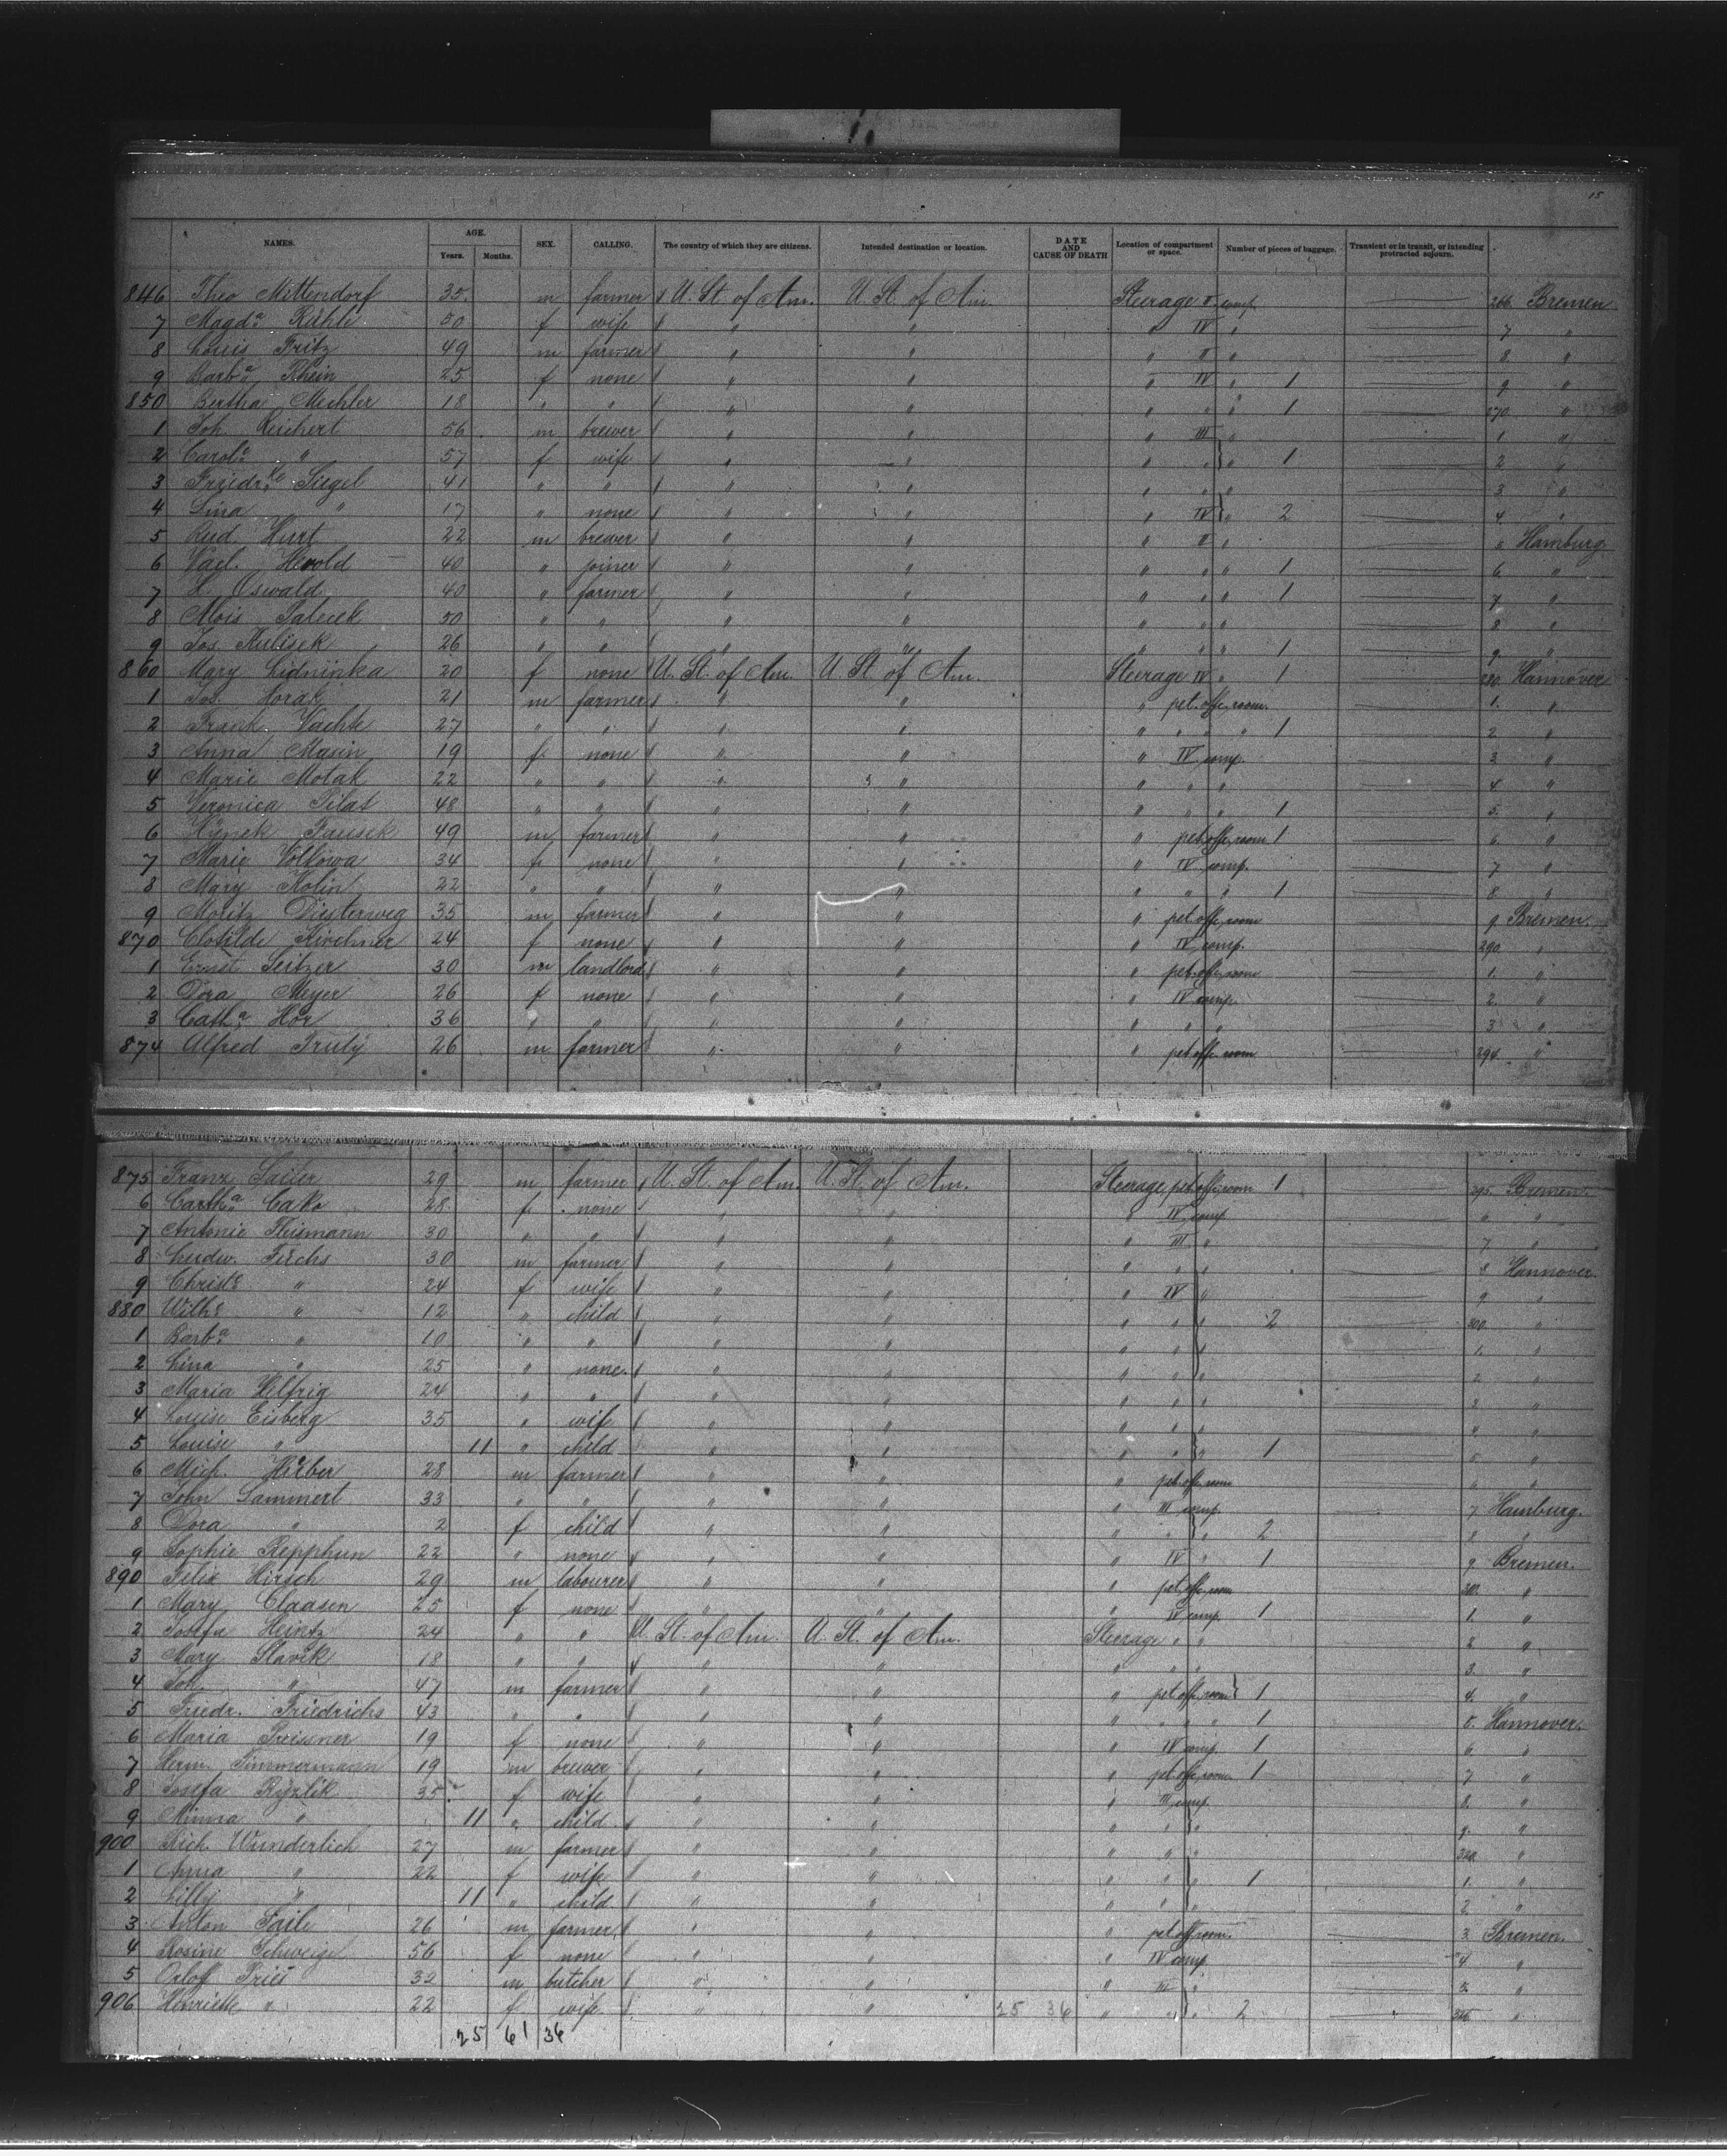 15
NAMES. AGE. Years. Months. SEX. CALLING. The country of which they are citizens. Intended destination or location. DATE AND CAUSE OF DEATH Location of compartment or space. Number of pieces of baggage. Transient or in transit, or intending protracted sojourn.
846 Theo Mittendorf 35. m farmer U. St. of Am. U. St. of Am. Steerage II comp. 266. Bremen
7 Magda. Rühle 50 f wife " " " IV " 7 "
8 Louis Fritz 49 m farmer " " " II " 8 "
9 Barba. Rhein 25 f none " " " IV " 1 9 "
850 Bertha Mechler 18 " " " " " " " 1 270. "
1 Joh. Reichert 56 m brewer " " " III " 1 "
2 Carole. " 57 f wife " " " " " 1 2 "
3 Friedrke. Siegel 41 " " " " " " " 3 "
4 Lina " 17 " none " " " IV " 2 4. "
5 Rud. Hurt 22 m brewer " " " II " 5 Hamburg.
6 Vacl. Herold 40 " joiner " " " " " 1 6. "
7 L. Oswald 40 " farmer " " " " " 1 7. "
8 Alois 50 " " " " " " " 8 "
9 Jos. Kulisek 26 " " " " " " " 1 9. "
860 Mary 20 f none U. St. of Am. U. St. of Am. Steerage IV " 1 280. Hannover
1 Jos. Horak 21 m farmer " " " pet. offc. room. 1. "
2 Frank Vachte 27 " " " " " " " 1 2. "
3 Anna Masin 19 f. none " " " IV comp. 3 "
4 Marie Motak 22 " " " " " " " 4 "
5 Veronica Pilat 48 " " " " " " " 1 5. "
6 Hynek 49 m farmer " " " pet. offc. room 1 6. "
7 Marie 34 f. none " " " IV comp. 7 "
8 Mary Kolin 22 " " " " " " " 1 8 "
9 Moritz Diesterweg 35 m farmer " " " pet. offc. room 9. Bremen.
870 Clotilde Kirchner 24 f none " " " IV comp. 290. "
1 Ernst Seitzer 30 m landlord " " " pet. offc. room 1. "
2 Dora Meyer 26 f none " " " IV comp. 2. "
3 Catha. Hor 36 " " " " " " " 3 "
874 Alfred Truly 26 m farmer " " " pet. offc. room 294. "
875 Franz Sailer 29 m farmer U. St. of Am. U. St. of Am. Steerage pet. offc. room 1 295. Bremen.
6 Cako 28. f. none " " " IV comp. 6 "
7 Antonie 30 " " " " " III " 7. "
8 Ludw. Fuchs 30 m farmer " " " " " 8 Hannover.
9 Christe. " 24 f. wife " " " IV " 9 "
880 Wilhe. " 12 " child " " " " " 2 300. "
1 Barba. " 10 " " " " " " " 1. "
2 Lina " 25 " none. " " " " " 2. "
3 Maria Helfrig 24 " " " " " " " 3 "
4 Louise Eisberg 35 " wife " " " " " 4 "
5 Louise " 11 " child " " " " " 1 5 "
6 Mich. 28 m farmer " " " pet. offc. room 6 "
7 John Lammert 33 " " " " " III comp. 7 Hamburg.
8 Dora " 2 f child " " " " " 2 8. "
9 Sophie Repphun 22 " none " " " IV " 1 9. Bremen.
890 Felix Hirsch 29 m labourer " " " pet. offc. room 310. "
1 Mary Claasen 25 f none " " " IV comp. 1 1. "
2 Josefa Heintz 24 " " U. St. of Am. U. St. of Am. Steerage " " 2 "
3 Mary Slavik 18 " " " " " " " 3. "
4 Joh. " 47 m farmer " " " pet. offc. room 1 4. "
5 Friedr. Friedrichs 43 " " " " " " " " 1 5. Hannover.
6 Maria Preissner 19 f none " " " IV comp. 1 6. "
7 Herm. Timmermann 19 m brewer " " " pet. offc. room 1 7 "
8 Josefa Ryzlik 35 f wife " " " III comp. 8. "
9 Minna " 11 " child " " " " " 9. "
900 Rich. Wunderlich 27 m farmer " " " " " 320. "
1 Anna " 22 f wife " " " " " 1 1. "
2 Lilly " 11 " child " " " " " 2. "
3 Anton Faile 26 m farmer " " " pet. off. room. 3. Bremen.
4 Rosine 56 f none " " " IV comp. 4 "
5 Orloff Fries 32 m butcher " " " III " "
906 Henriette " 22 f wife. " " 25 36 " " " 2 326 "
25 61 36